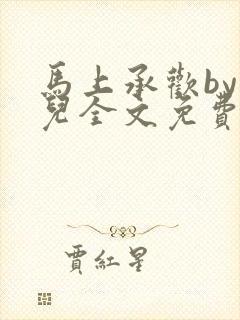 馬上承歡by
兒全文免費
賈紅星